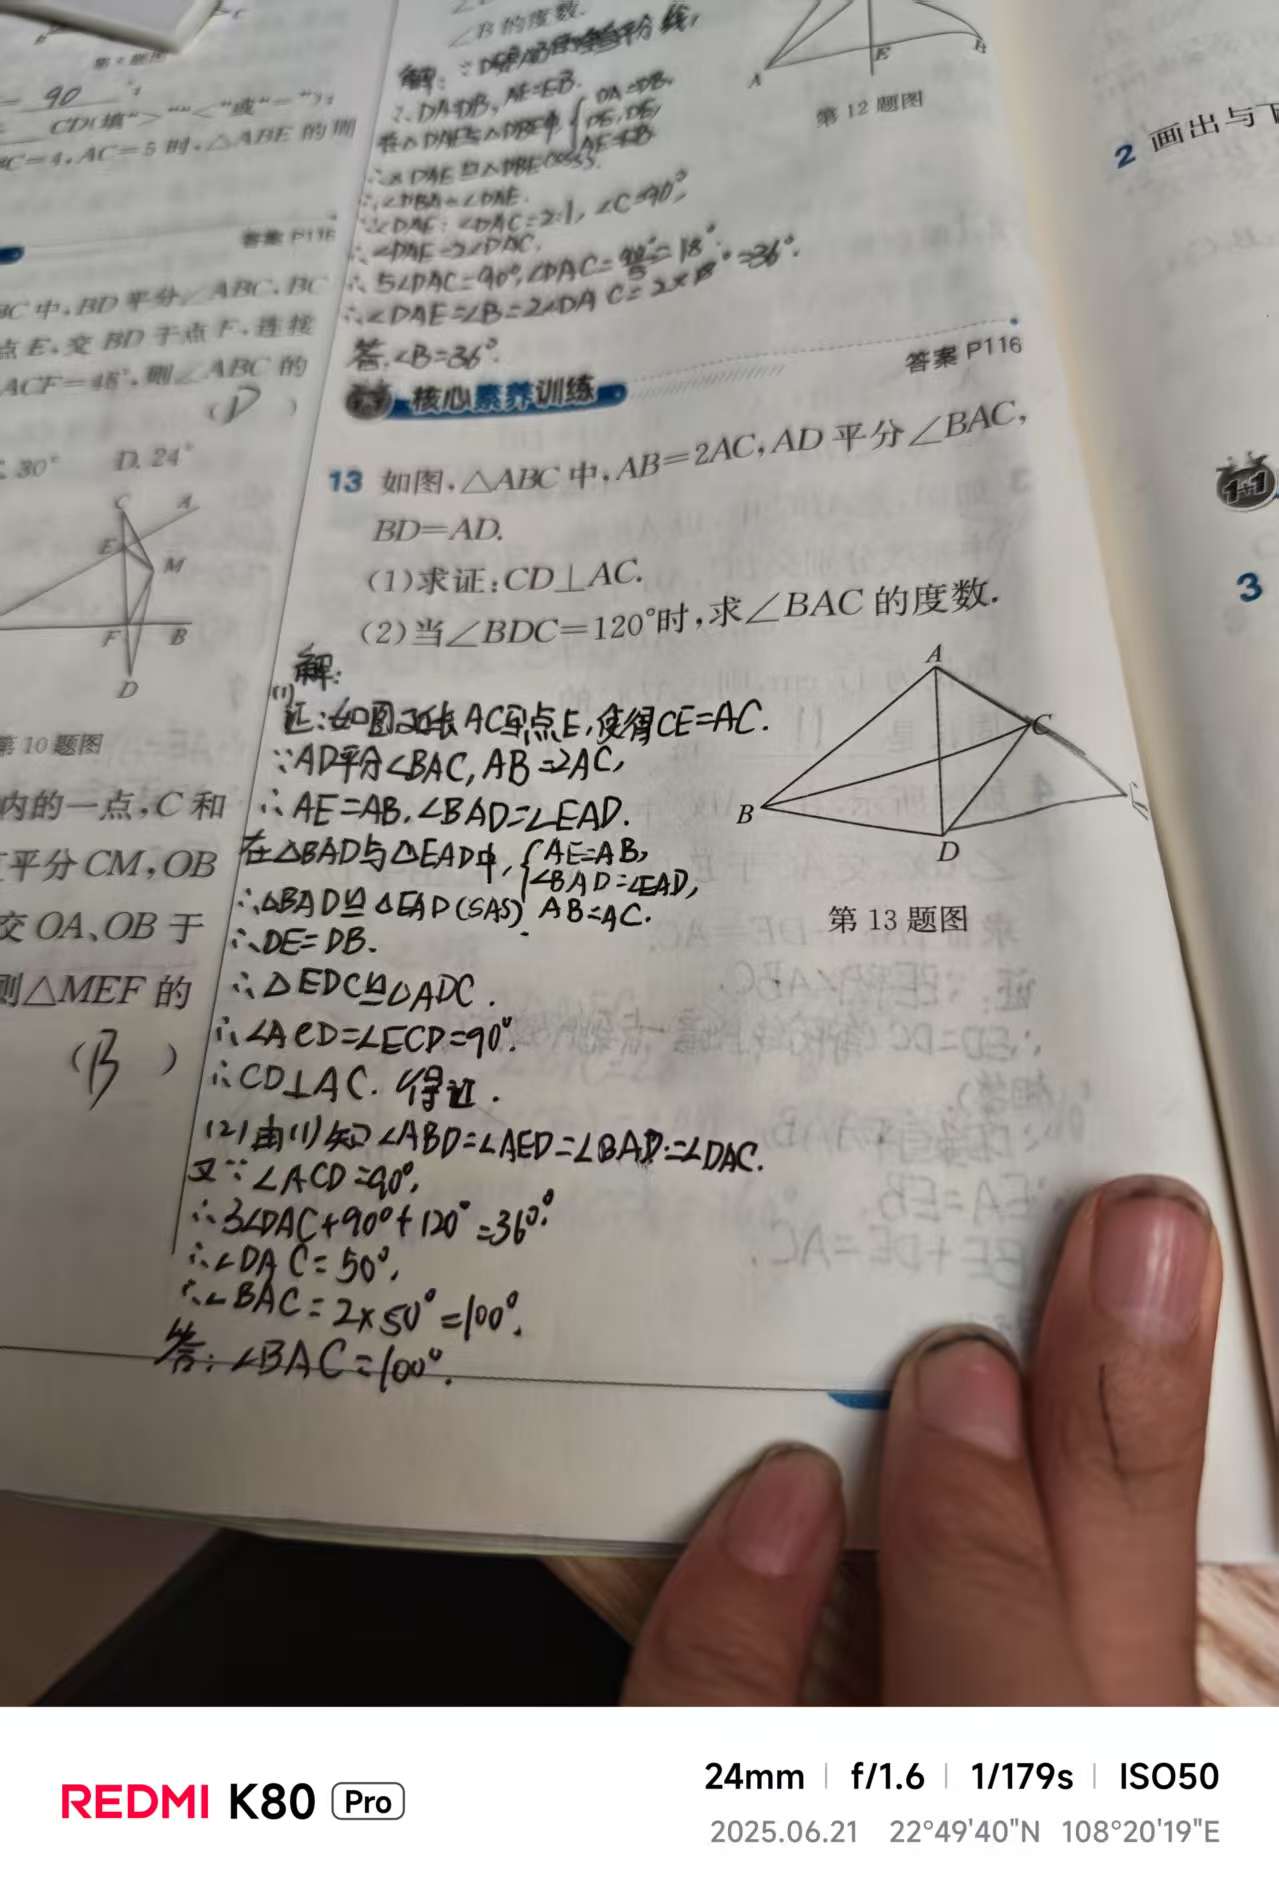 = 90 ;
CD(填“>”“<”或“=”);
BC=4,AC=5时,△ABE的周
答案P116
BC中,BD平分∠ABC,BC
点E,交BD于点F,连接
ACF=48°,则∠ABC的
(D)
30° D. 24°
C A
E M
F B
D
第10题图
内的一点,C和
平分CM,OB
交OA、OB于
则△MEF的
(B)
∠B的度数.
∴DA=DB, AE=EB.
在△DAE与△DBE中 { DA=DB,
DE=DE,
AE=EB
∴△DAE≌△DBE(SSS).
∴∠DBA=∠DAE.
∵∠DAE:∠DAC=2:1, ∠C=90°,
∴∠DAE=2∠DAC.
∴5∠DAC=90°,∠DAC=90°/5=18°.
∴∠DAE=∠B=2∠DAC=2×18°=36°.
答:∠B=36°.
A E B
第12题图
核心素养训练
答案P116
13 如图,△ABC中,AB=2AC,AD平分∠BAC,
BD=AD.
(1)求证:CD⊥AC.
(2)当∠BDC=120°时,求∠BAC的度数.
解:
(1)
证:如图延长AC至点E,使得CE=AC.
∵AD平分∠BAC, AB=2AC,
∴AE=AB.∠BAD=∠EAD.
在△BAD与△EAD中,{ AE=AB,
∠BAD=∠EAD,
AB=AC.
∴△BAD≌△EAD(SAS)
∴DE=DB.
∴△EDC≌△ADC.
∴∠ACD=∠ECD=90°.
∴CD⊥AC. 得证.
(2)由(1)知∠ABD=∠AED=∠BAD=∠DAC.
又∵∠ACD=90°,
∴3∠DAC+90°+120°=360°.
∴∠DAC=50°.
∴∠BAC=2×50°=100°.
答:∠BAC=100°.
A
B
C
D
第13题图
2 画出与
1+1
3
REDMI K80 Pro
24mm | f/1.6 | 1/179s | ISO50
2025.06.21 22°49'40"N 108°20'19"E